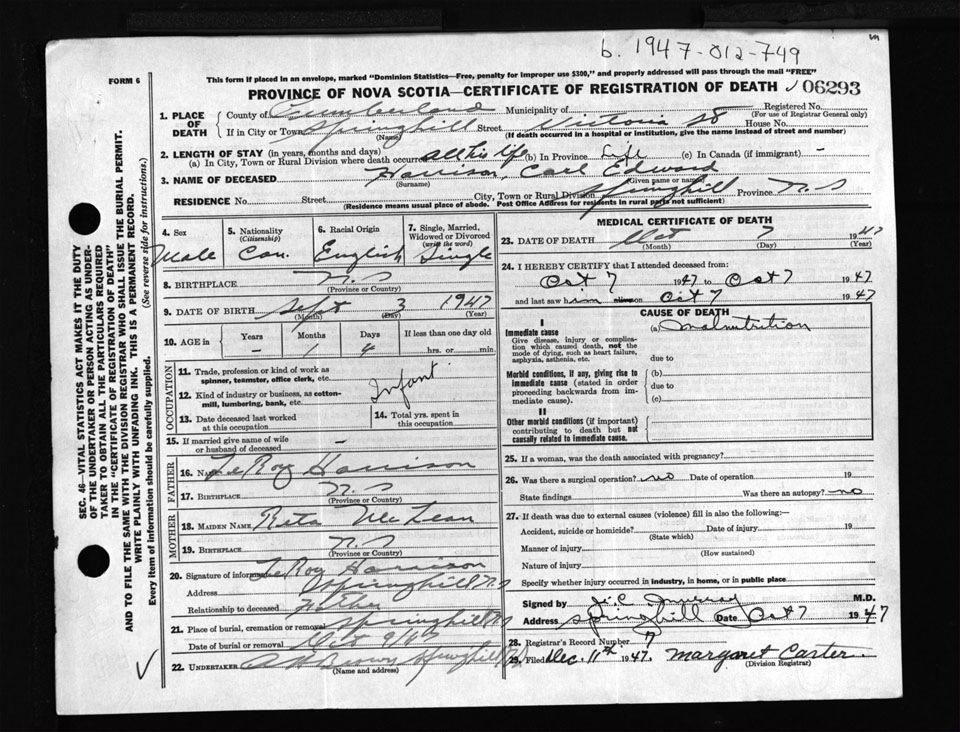 b. 1947-012-749
FORM 6
This form if placed in an envelope, marked "Dominion Statistics—Free, penalty for improper use $300," and properly addressed will pass through the mail "FREE"
PROVINCE OF NOVA SCOTIA—CERTIFICATE OF REGISTRATION OF DEATH 06293
1. PLACE OF DEATH
County of Cumberland Municipality of Registered No.
(For use of Registrar General only)
If in City or Town Springhill Street Victoria St House No.
(Name) (If death occurred in a hospital or institution, give the name instead of street and number)
2. LENGTH OF STAY (in years, months and days)
(a) In City, Town or Rural Division where death occurred all his life (b) In Province Life (c) In Canada (if immigrant) -
3. NAME OF DECEASED Harrison, Carl Edward
(Surname) (Given name or names)
RESIDENCE No. Street City, Town or Rural Division Springhill Province N.S
(Residence means usual place of abode. Post Office Address for residents in rural parts not sufficient)
4. Sex Male
5. Nationality (Citizenship) Can.
6. Racial Origin English
7. Single, Married, Widowed or Divorced (write the word) Single
8. BIRTHPLACE N.S
(Province or Country)
9. DATE OF BIRTH Sept 3 1947
(Month) (Day) (Year)
10. AGE in Years Months Days If less than one day old
- 1 4 hrs. or min.
OCCUPATION
11. Trade, profession or kind of work as spinner, teamster, office clerk, etc.
Infant
12. Kind of industry or business, as cotton-mill, lumbering, bank, etc.
13. Date deceased last worked at this occupation
14. Total yrs. spent in this occupation
15. If married give name of wife or husband of deceased -
FATHER
16. Name LeRoy Harrison
17. Birthplace N.S
(Province or Country)
MOTHER
18. Maiden Name Reta McLean
19. Birthplace N.S
(Province or Country)
20. Signature of informant LeRoy Harrison
Address Springhill N.S
Relationship to deceased Father
21. Place of burial, cremation or removal Springhill N.S
Date of burial or removal Oct 9/47
22. Undertaker Brown Springhill N.S
(Name and address)
MEDICAL CERTIFICATE OF DEATH
23. DATE OF DEATH Oct 7 1947
(Month) (Day) (Year)
24. I HEREBY CERTIFY that I attended deceased from:
Oct 7 1947 to Oct 7 1947
and last saw him alive on Oct 7 1947
CAUSE OF DEATH
I
Immediate cause
Give disease, injury or complication which caused death, not the mode of dying, such as heart failure, asphyxia, asthenia, etc.
(a) Malnutrition
due to
Morbid conditions, if any, giving rise to immediate cause (stated in order proceeding backwards from immediate cause).
(b)
due to
(c)
II
Other morbid conditions (if important) contributing to death but not causally related to immediate cause.
25. If a woman, was the death associated with pregnancy?
26. Was there a surgical operation? no Date of operation 19
State findings Was there an autopsy? no
27. If death was due to external causes (violence) fill in also the following:—
Accident, suicide or homicide? Date of injury 19
(State which)
Manner of injury
(How sustained)
Nature of injury
Specify whether injury occurred in industry, in home, or in public place
Signed by Murray M.D.
Address Springhill Date Oct 7 1947
28. Registrar's Record Number 7
29. Filed Dec. 11th 1947. Margaret Carter
(Division Registrar)
SEC. 46—VITAL STATISTICS ACT MAKES IT THE DUTY
OF THE UNDERTAKER OR PERSON ACTING AS UNDERTAKER TO OBTAIN ALL THE PARTICULARS REQUIRED
IN THE "CERTIFICATE OF REGISTRATION OF DEATH"
AND TO FILE THE SAME WITH THE DIVISION REGISTRAR WHO SHALL ISSUE THE BURIAL PERMIT.
WRITE PLAINLY WITH UNFADING INK. THIS IS A PERMANENT RECORD.
Every item of information should be carefully supplied. (See reverse side for instructions.)